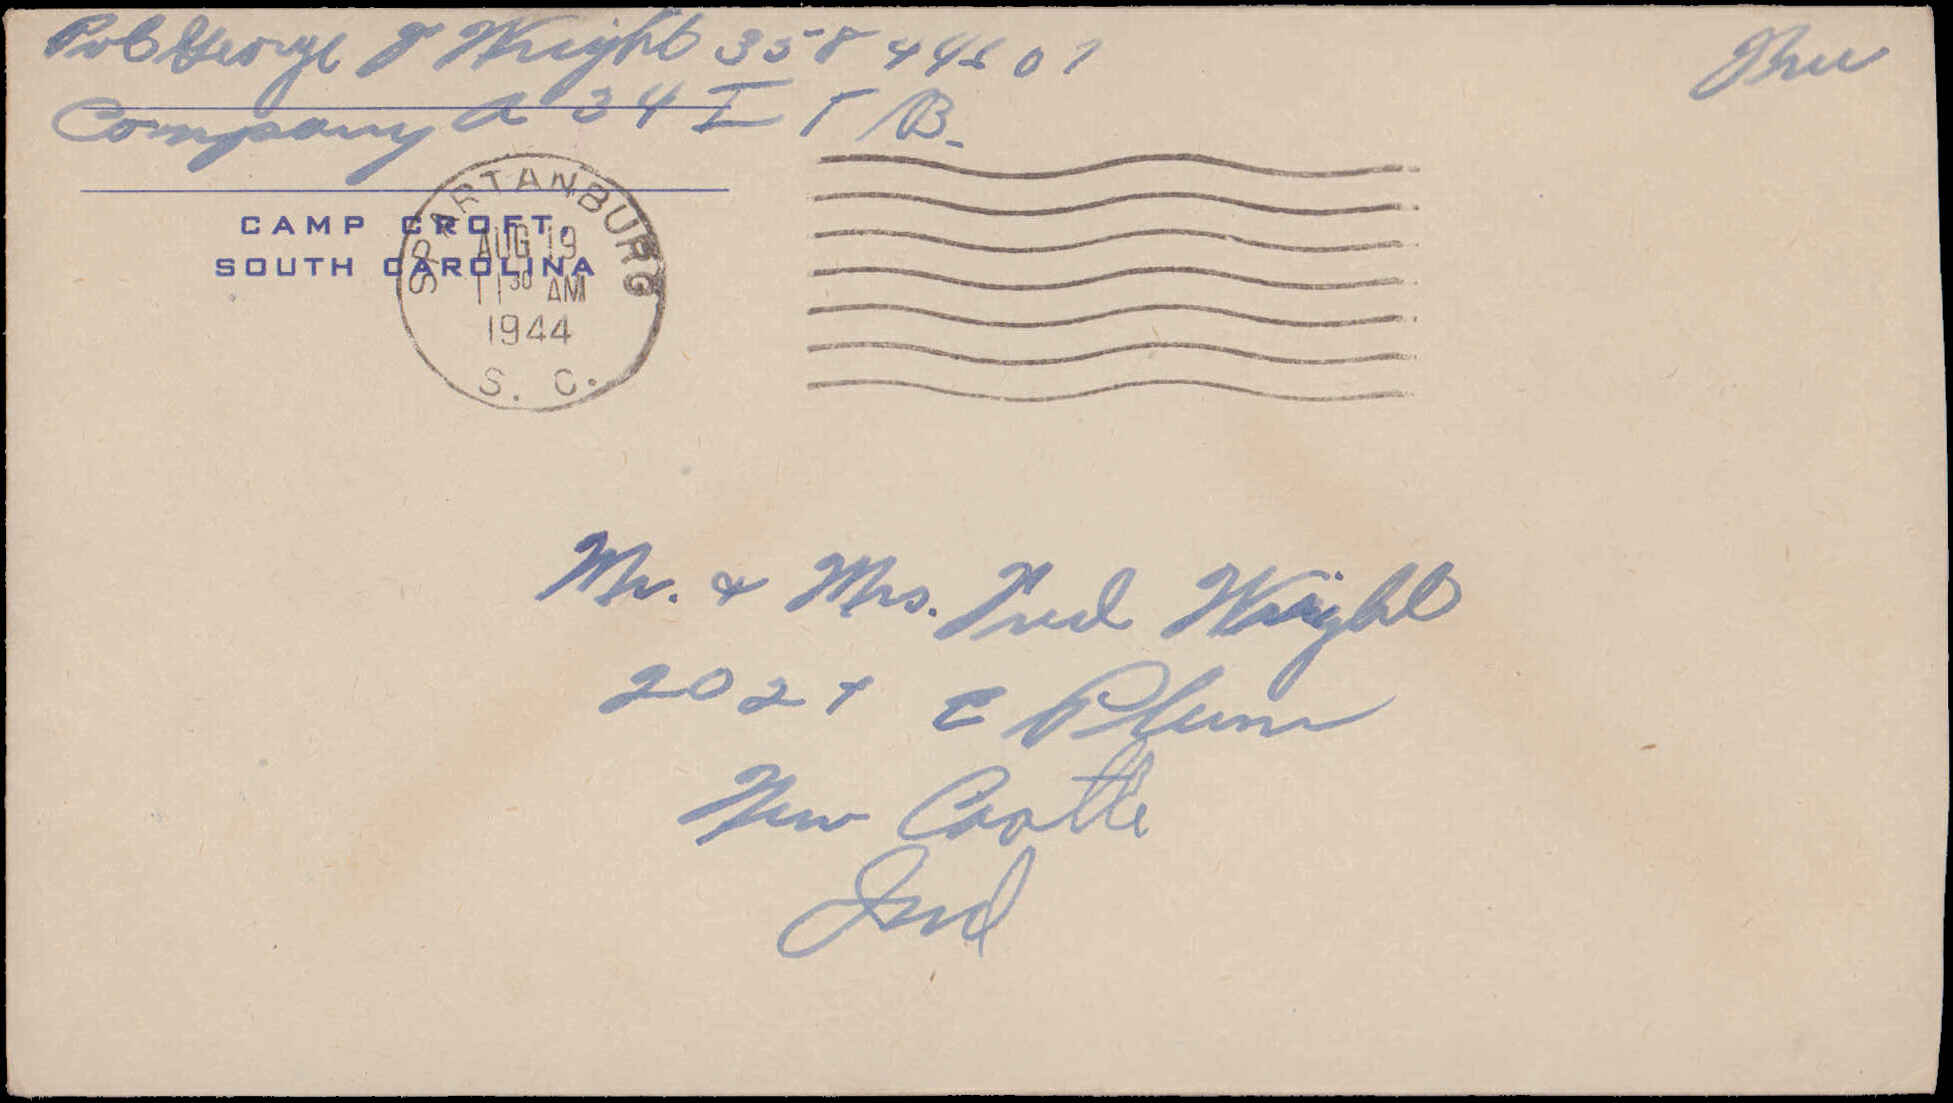 Pvt George J Wright 35844607
Free
Company A 34 I T B.
CAMP CROFT,
SOUTH CAROLINA
SPARTANBURG
AUG 19
11 30 AM
1944
S. C.
Mr. & Mrs. Fred Wright
2021 E Plum
New Castle
Ind